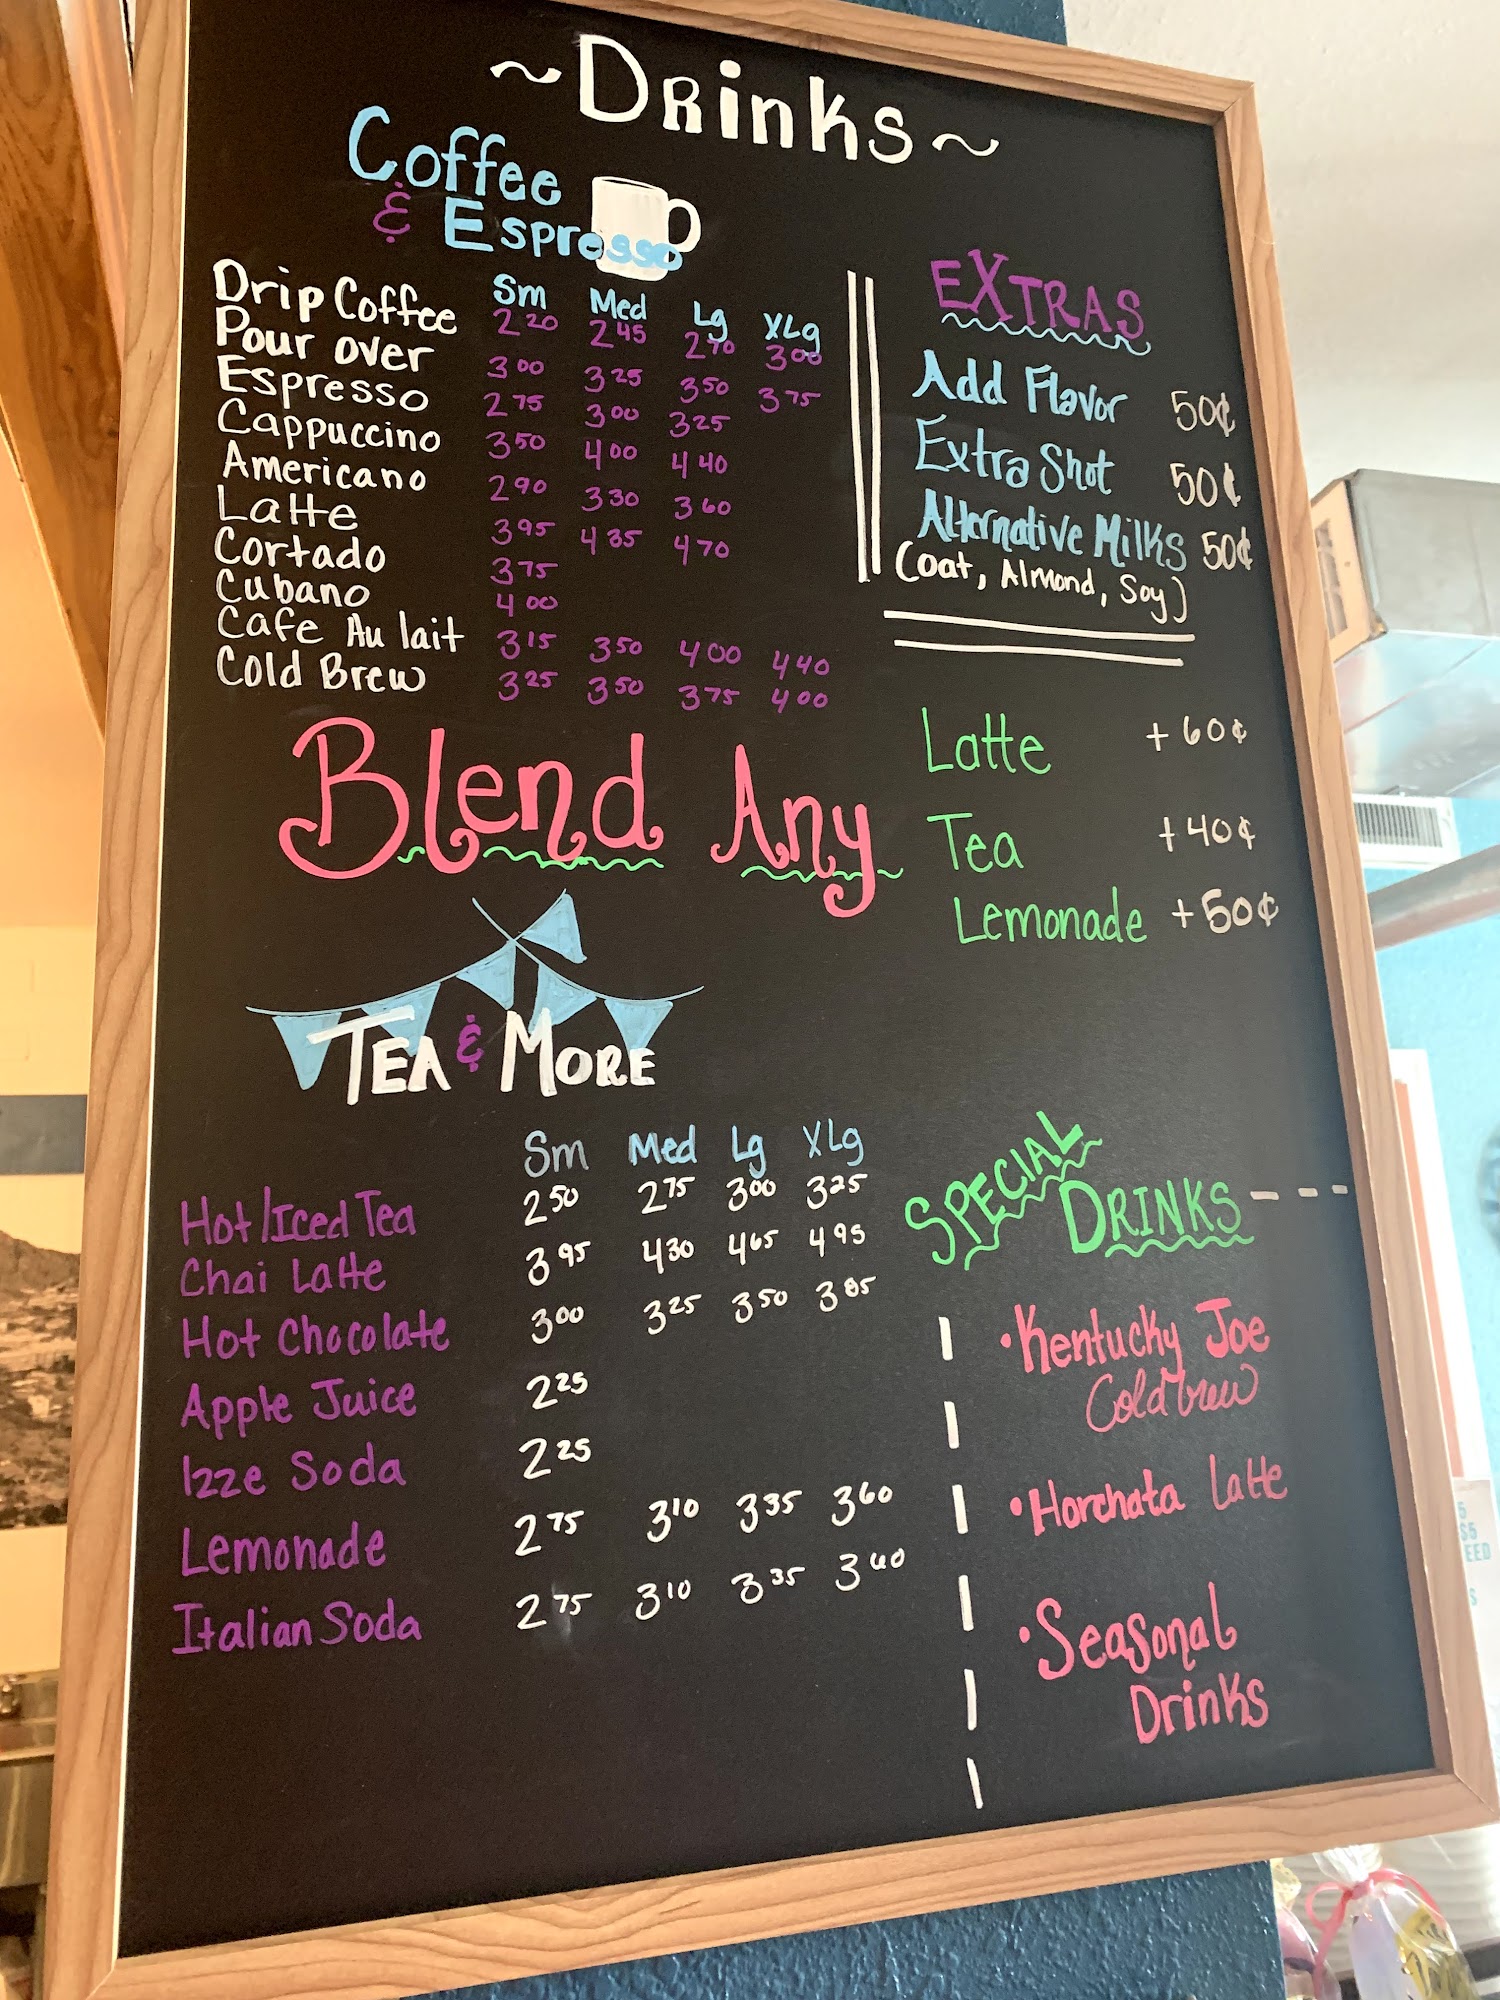 ~Drinks~
Coffee
& Espresso
Sm Med Lg XLg
Drip Coffee 2.20 2.45 2.70 3.00
Pour over 3.00 3.25 3.50 3.75
Espresso 2.75 3.00 3.25
Cappuccino 3.50 4.00 4.40
Americano 2.90 3.30 3.60
Latte 3.95 4.35 4.70
Cortado 3.75
Cubano 4.00
Cafe Au lait 3.15 3.50 4.00 4.40
Cold Brew 3.25 3.50 3.75 4.00
EXTRAS
Add Flavor 50¢
Extra Shot 50¢
Alternative Milks 50¢
(oat, Almond, Soy)
Blend Any
Latte +60¢
Tea +40¢
Lemonade +50¢
TEA & MORE
Sm Med Lg XLg
Hot/Iced Tea 2.50 2.75 3.00 3.25
Chai Latte 3.95 4.30 4.65 4.95
Hot Chocolate 3.00 3.25 3.50 3.85
Apple Juice 2.25
Izze Soda 2.25
Lemonade 2.75 3.10 3.35 3.60
Italian Soda 2.75 3.10 3.35 3.60
SPECIAL
DRINKS
• Kentucky Joe
Cold brew
• Horchata Latte
• Seasonal
Drinks